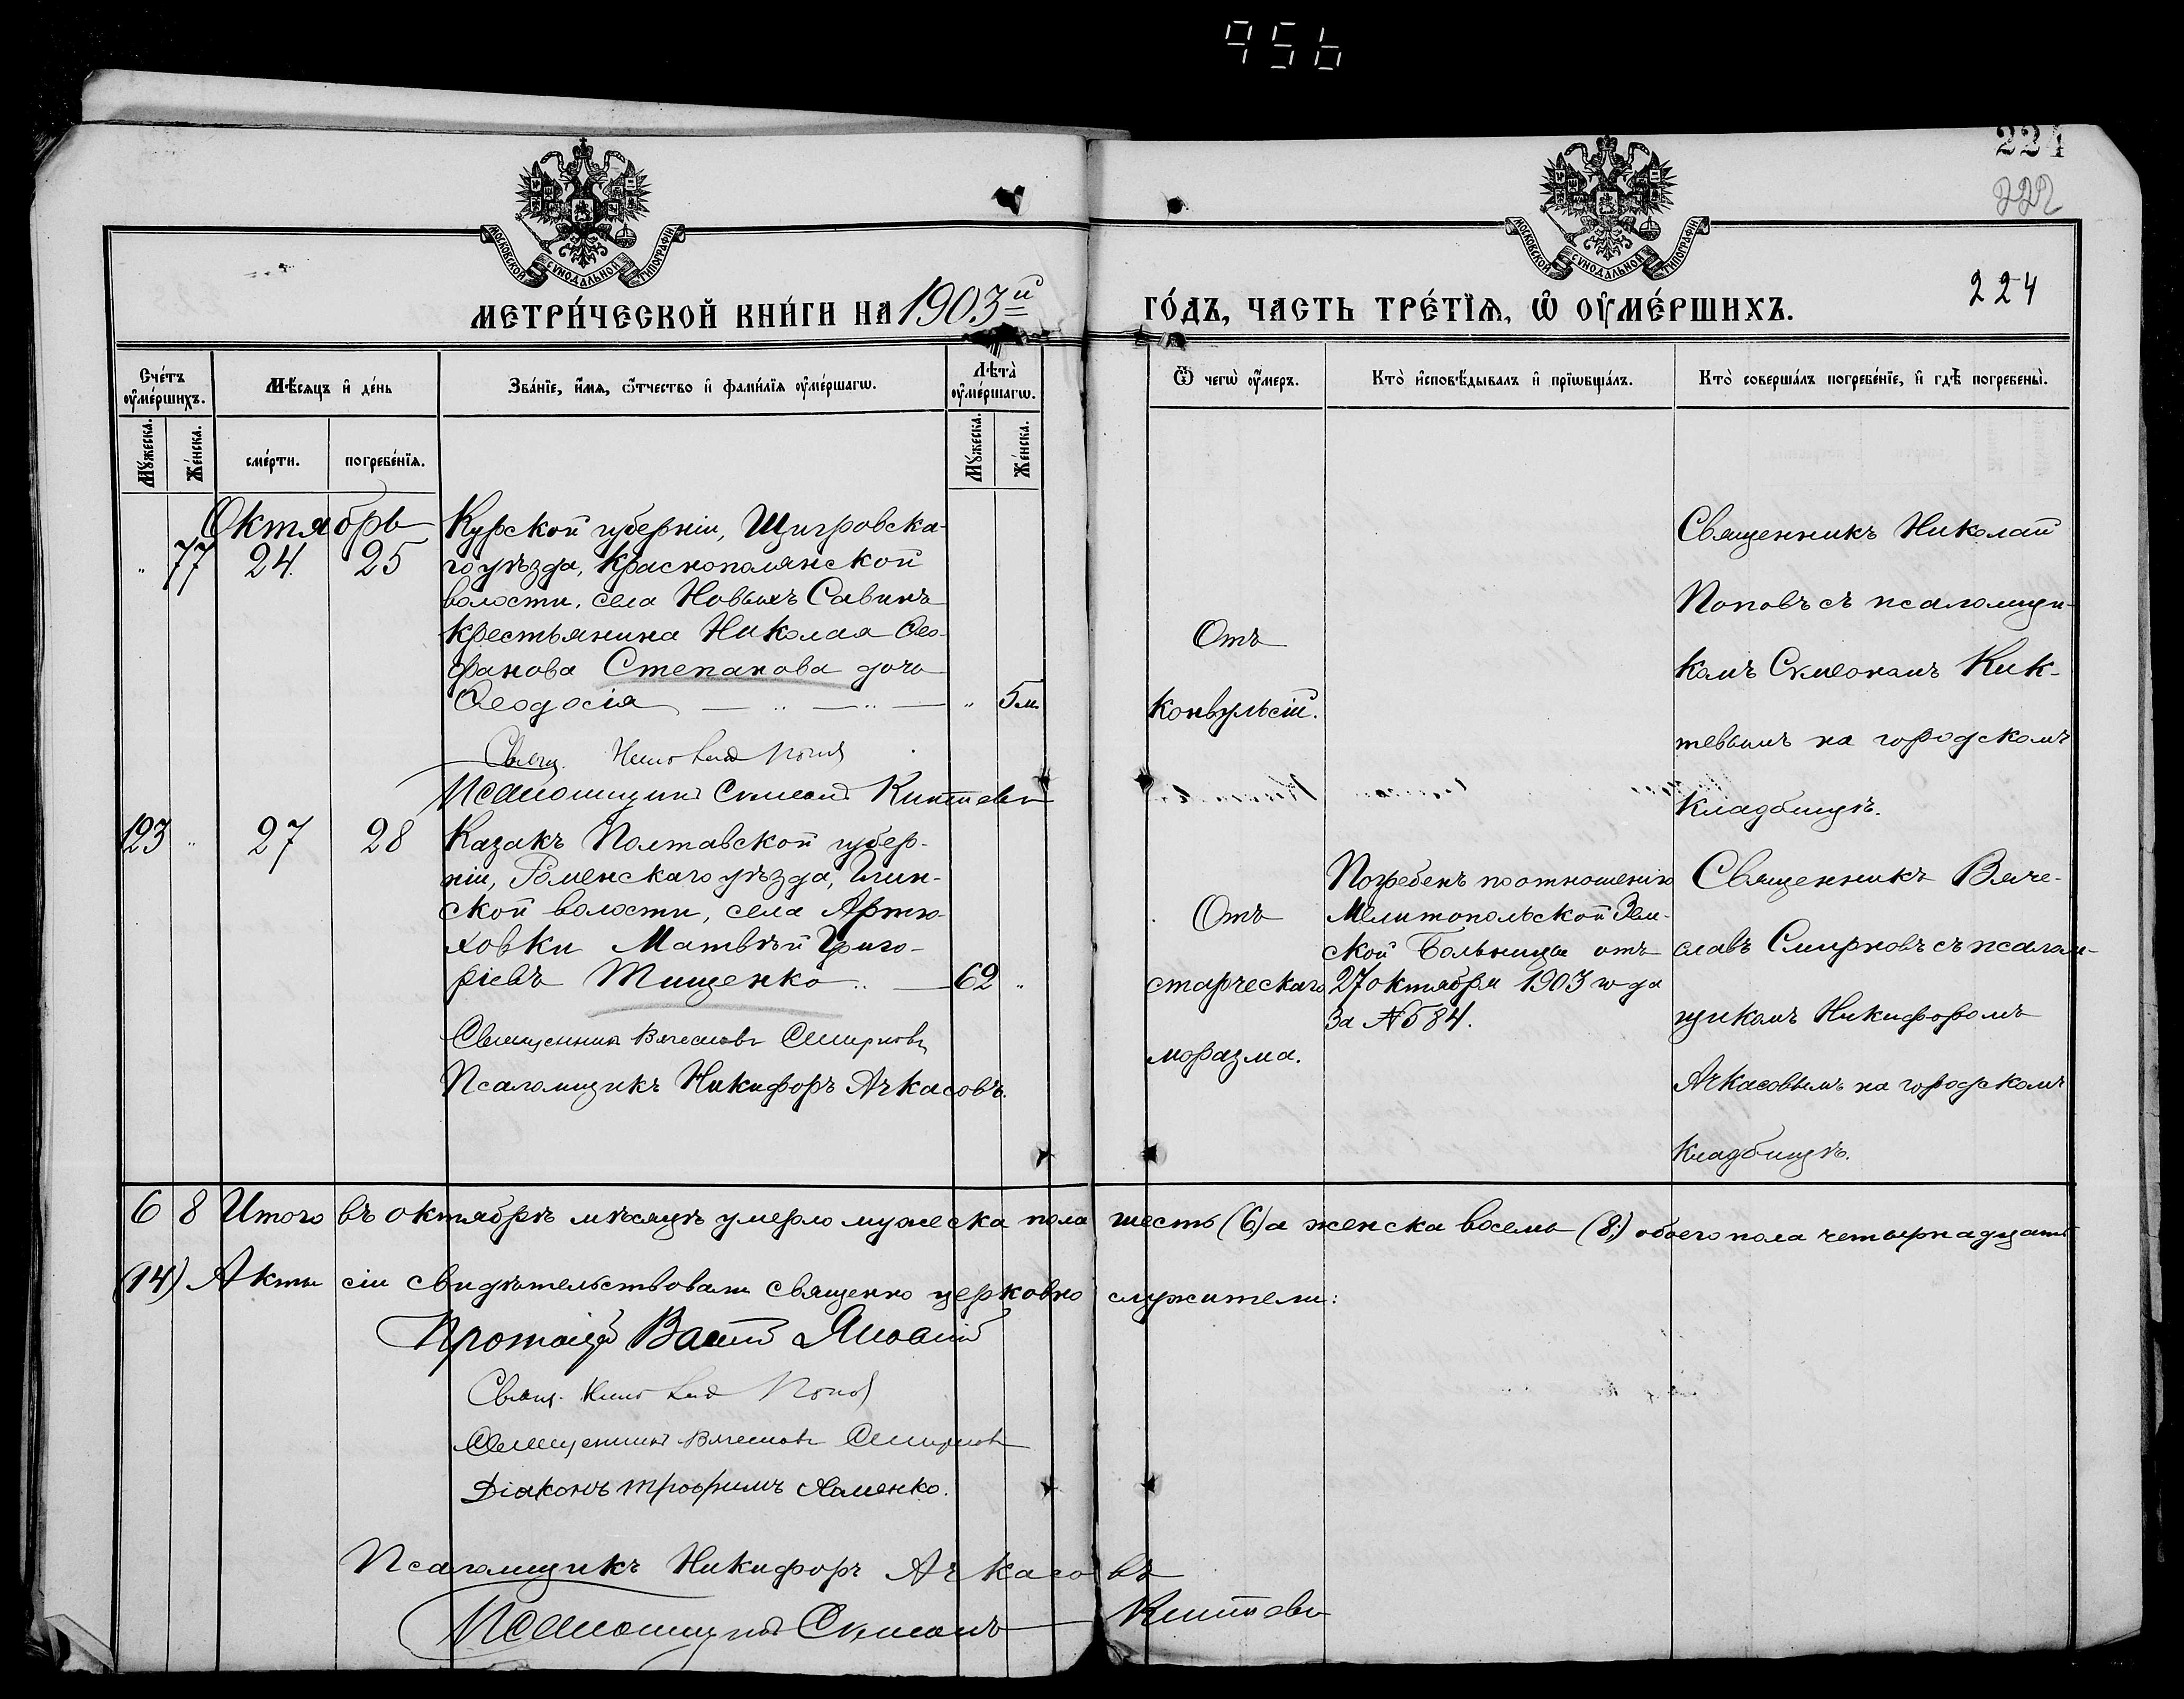 956
224
222
МОСКОВСКОЙ СѴНОДАЛЬНОЙ ТИПОГРАФІИ
МОСКОВСКОЙ СѴНОДАЛЬНОЙ ТИПОГРАФІИ
МЕТРИ́ЧЕСКОЙ КНИ́ГИ НА 1903й ГО́ДЪ, ЧАСТЬ ТРЕ́ТЇѦ, Ѡ҆ ОУ҆МЕ́РШИХЪ.
224
Сче́тъ оу҆ме́ршихъ.
Мѣ́сѧцъ и҆ де́нь
Зва́нїе, и҆́мѧ, ѻ҆́тчество и҆ фами́лїѧ оу҆ме́ршагѡ.
Лѣ́та оу҆ме́ршагѡ.
Ѿ чегѡ̀ оу҆́меръ.
Кто̀ и҆сповѣ́дывалъ и҆ прїѡбща́лъ.
Кто̀ соверша́лъ погребе́нїе, и҆ гдѣ̀ погребены̀.
Мꙋ́жеска.
Же́нска.
сме́рти.
погребе́нїѧ.
Мꙋ́жеска.
Же́нска.
Октябрь
" 77 24. 25
Курской губерніи, Щигровска-
го уѣзда, Краснополянской
волости, села Новыхъ Савинъ
крестьянина Николая Ѳео-
фанова Степанова дочь
Ѳеодосія " 5 м.
Свящ. Николай Попов
Псаломщикъ Сѵмеонъ Киктевъ
Отъ
конвульсій.
Священникъ Николай
Поповъ съ псаломщи-
комъ Сѵмеономъ Кик-
тевымъ на городскомъ
кладбищѣ.
123 " 27 28
Казакъ Полтавской губер-
ніи, Роменскаго уѣзда, Глин-
ской волости, села Артю-
ховки Матвѣй Григо-
рьевъ Тищенко 62 "
Священникъ Вячеславъ Смирновъ
Псаломщикъ Никифоръ Ачкасовъ.
Отъ
старческаго
моразма.
Погребенъ по отношенію
Мелитопольской Зем-
ской Больницы отъ
27 октября 1903 года
за № 584.
Священникъ Вяче-
славъ Смирновъ съ псалом-
щикомъ Никифоромъ
Ачкасовымъ на городскомъ
кладбищѣ.
6 8 Итого въ октябрѣ мѣсяцѣ умерло мужеска пола шесть (6) а женска восемь (8,) обоего пола четырнадцать
(14) Акты сіи свидѣтельствовали священно церковно служители:
Свящ. Николай Попов
Священникъ Вячеславъ Смирновъ
Діаконъ Трофимъ Хоменко.
Псаломщикъ Никифоръ Ачкасовъ
Псаломщикъ Сѵмеонъ Киктевъ